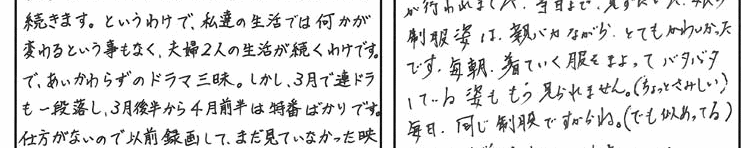 続きます。というわけで、私達の生活では何かが
変わるという事もなく、夫婦2人の生活が続くわけです。
で、あいかわらずのドラマ三昧。しかし、3月で連ドラ
も一段落し、3月後半から4月前半は特番ばかりです。
仕方がないので以前録画して、まだ見ていなかった映
が行われました。
制服姿は、親バカながら、とてもかわいかった
です。毎朝、着ていく服をまよってバタバタ
している姿ももう見られません。(ちょっとさみしい)
毎日、同じ制服ですからね。(でも似あってる)